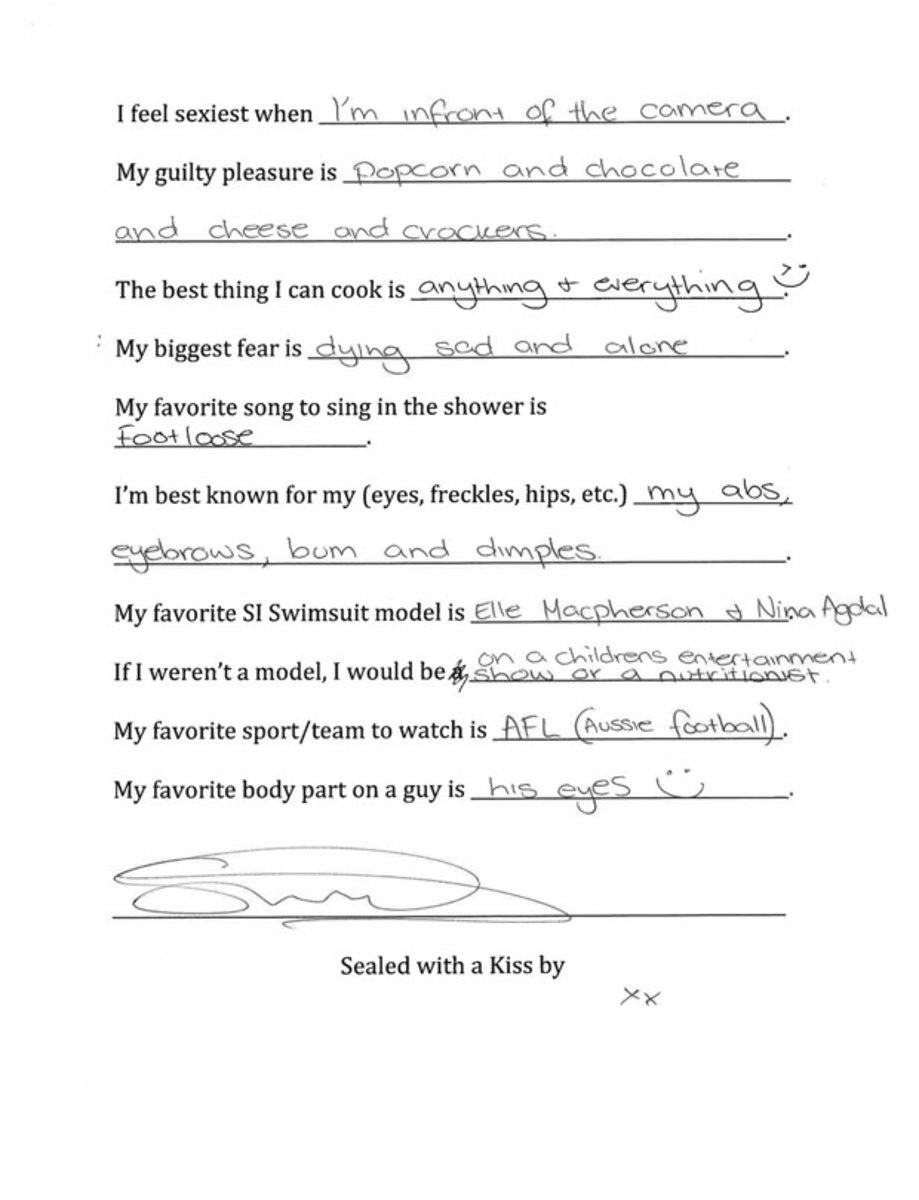 I feel sexiest when I'm infront of the camera.
My guilty pleasure is Popcorn and chocolate
and cheese and crackers.
The best thing I can cook is anything + everything.
My biggest fear is dying sad and alone.
My favorite song to sing in the shower is
Footloose.
I'm best known for my (eyes, freckles, hips, etc.) my abs,
eyebrows, bum and dimples.
My favorite SI Swimsuit model is Elle Macpherson & Nina Agdal
on a childrens entertainment
If I weren't a model, I would be show or a nutritionist.
My favorite sport/team to watch is AFL (Aussie football).
My favorite body part on a guy is his eyes.
Sealed with a Kiss by
xx